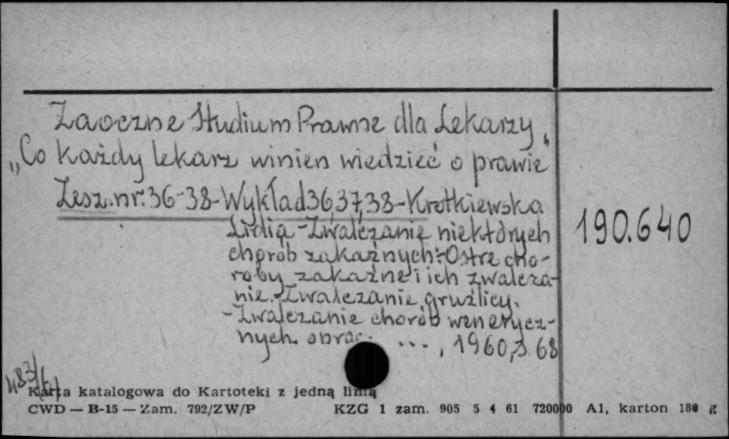 Zaoczne Studium Prawne dla Lekarzy.
„Co każdy lekarz winien wiedzieć o prawie
Zesz. nr. 36-38-Wykład 36,37,38-Krotkiewska
Lidia-Zwalczanie niektórych
chorób zakaźnych:-Ostre cho-
roby zakaźne i ich zwalcza-
nie.-Zwalczanie gruźlicy.
-Zwalczanie chorób wenerycz-
nych. oprac. ..., 1960, s. 68
190.640
Karta katalogowa do Kartoteki z jedną linią
CWD — B-15 — Zam. 792/ZW/P KZG 1 zam. 905 5 4 61 720000 A1, karton 180 g